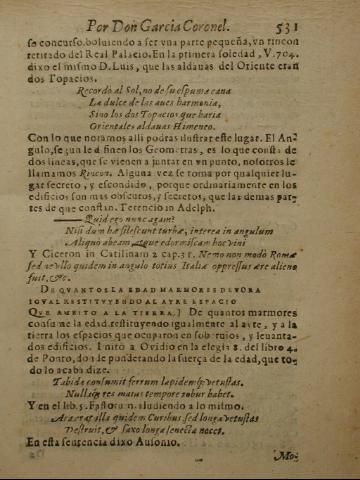 Por Don Garcia Coronel. 531
so concurso, boluiendo a ser vna parte pequeña, vn rincon
retirado del Real Palacio. En la primera soledad, V. 704.
dixo el mismo D. Luis, que las aldauas del Oriente eran
dos Topacios.
Recordò al Sol, no de su espuma cana
La dulce de las aues harmonia,
Sino los dos Topacios que batia
Orientales aldauas Himeneo.
Con lo que notamos alli podras ilustrar este lugar. El An-
gulo, segun le difinen los Geometras, es lo que consta de
dos lineas, que se vienen a juntar en vn punto, nosotros le
llamamos Rincon. Alguna vez se toma por qualquier lu-
gar secreto, y escondido, porque ordinariamente en los
edificios son mas obscuros, y secretos, que las demas par-
tes de que constan. Terencio in Adelph.
Quid ego nunc agam?
Nisi dum hæ silescunt turbæ, interea in angulum
Aliquò abeam, atque edormiscam hoc vini
Y Ciceron in Catilinam 2 cap. 31. Nemo non modò Romæ
sed nec vllo quidem in angulo totius Italiæ oppressus ære alieno
fuit, &c.
DE QUANTOS LA EDAD MARMORES DEVORA
IGUAL RESTITVYENDO AL AYRE ESPACIO
QVE AMBITO A LA TIERRA.] De quantos marmores
consume la edad, restituyendo igualmente al ayre, y a la
tierra los espacios que ocuparon en sus ruios, y leuanta-
dos edificios. Imito a Ovidio en la elegia 8. del libro 4.
de Ponto, donde ponderando la fuerça de la edad, que to-
do lo acaba dize.
Tabida consumit ferrum lapidemque vetustas.
Nullaque res maius tempore robur habet.
Y en el lib. 5. Fastorum. aludiendo a lo mismo.
quidem Curibus sed longa vetustas
Destruit, & saxo longa senecta nocet.
En esta sentencia dixo Ausonio.